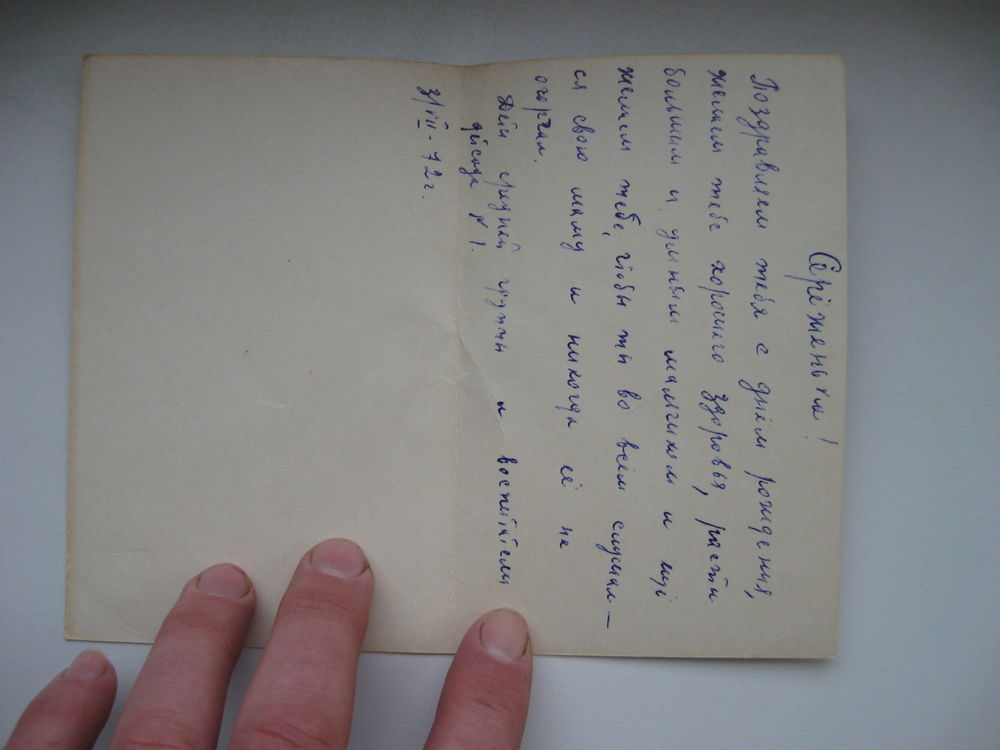 Серёженька!
Поздравляем тебя с днём рождения,
желаем тебе хорошего здоровья, расти
большим и умным мальчиком и ещё
желаем тебе, чтобы ты во всём слушал–
ся свою маму и никогда её не
огорчал.
Дети средней группы и воспитатели
д/сада № 1.
31/VII - 72 г.